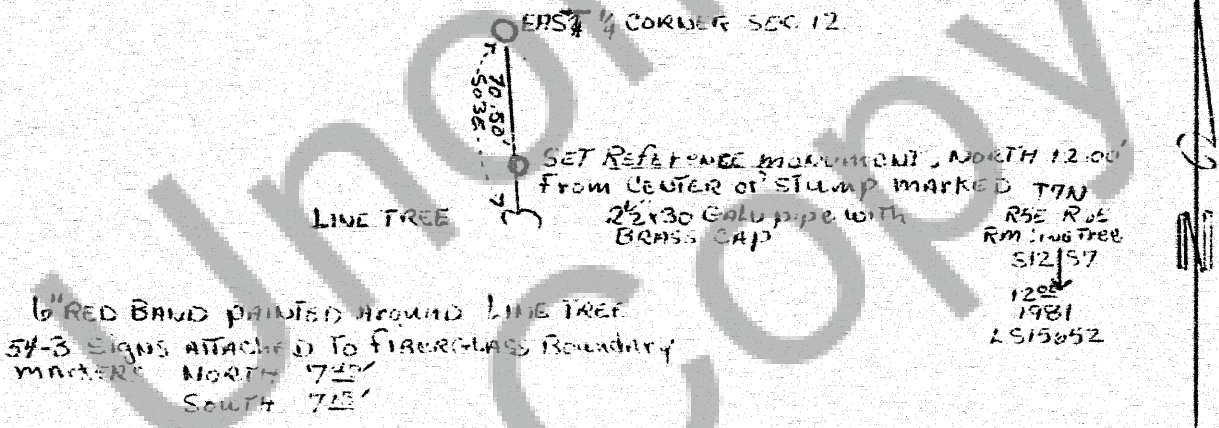 EAST 1/4 CORNER SEC 12
70.50'
SET REFERENCE MONUMENT, NORTH 12.00'
FROM CENTER OF STUMP MARKED T7N
LINE TREE
2½x30 Galv pipe with
BRASS CAP
R5E R6E
RM Line Tree
S12 S7
12.00
1981
LS15652
6" RED BAND PAINTED AROUND LINE TREE
54-3 SIGNS ATTACHED TO FIBERGLASS Boundary
MARKERS NORTH
SOUTH
N
Unof
Copy